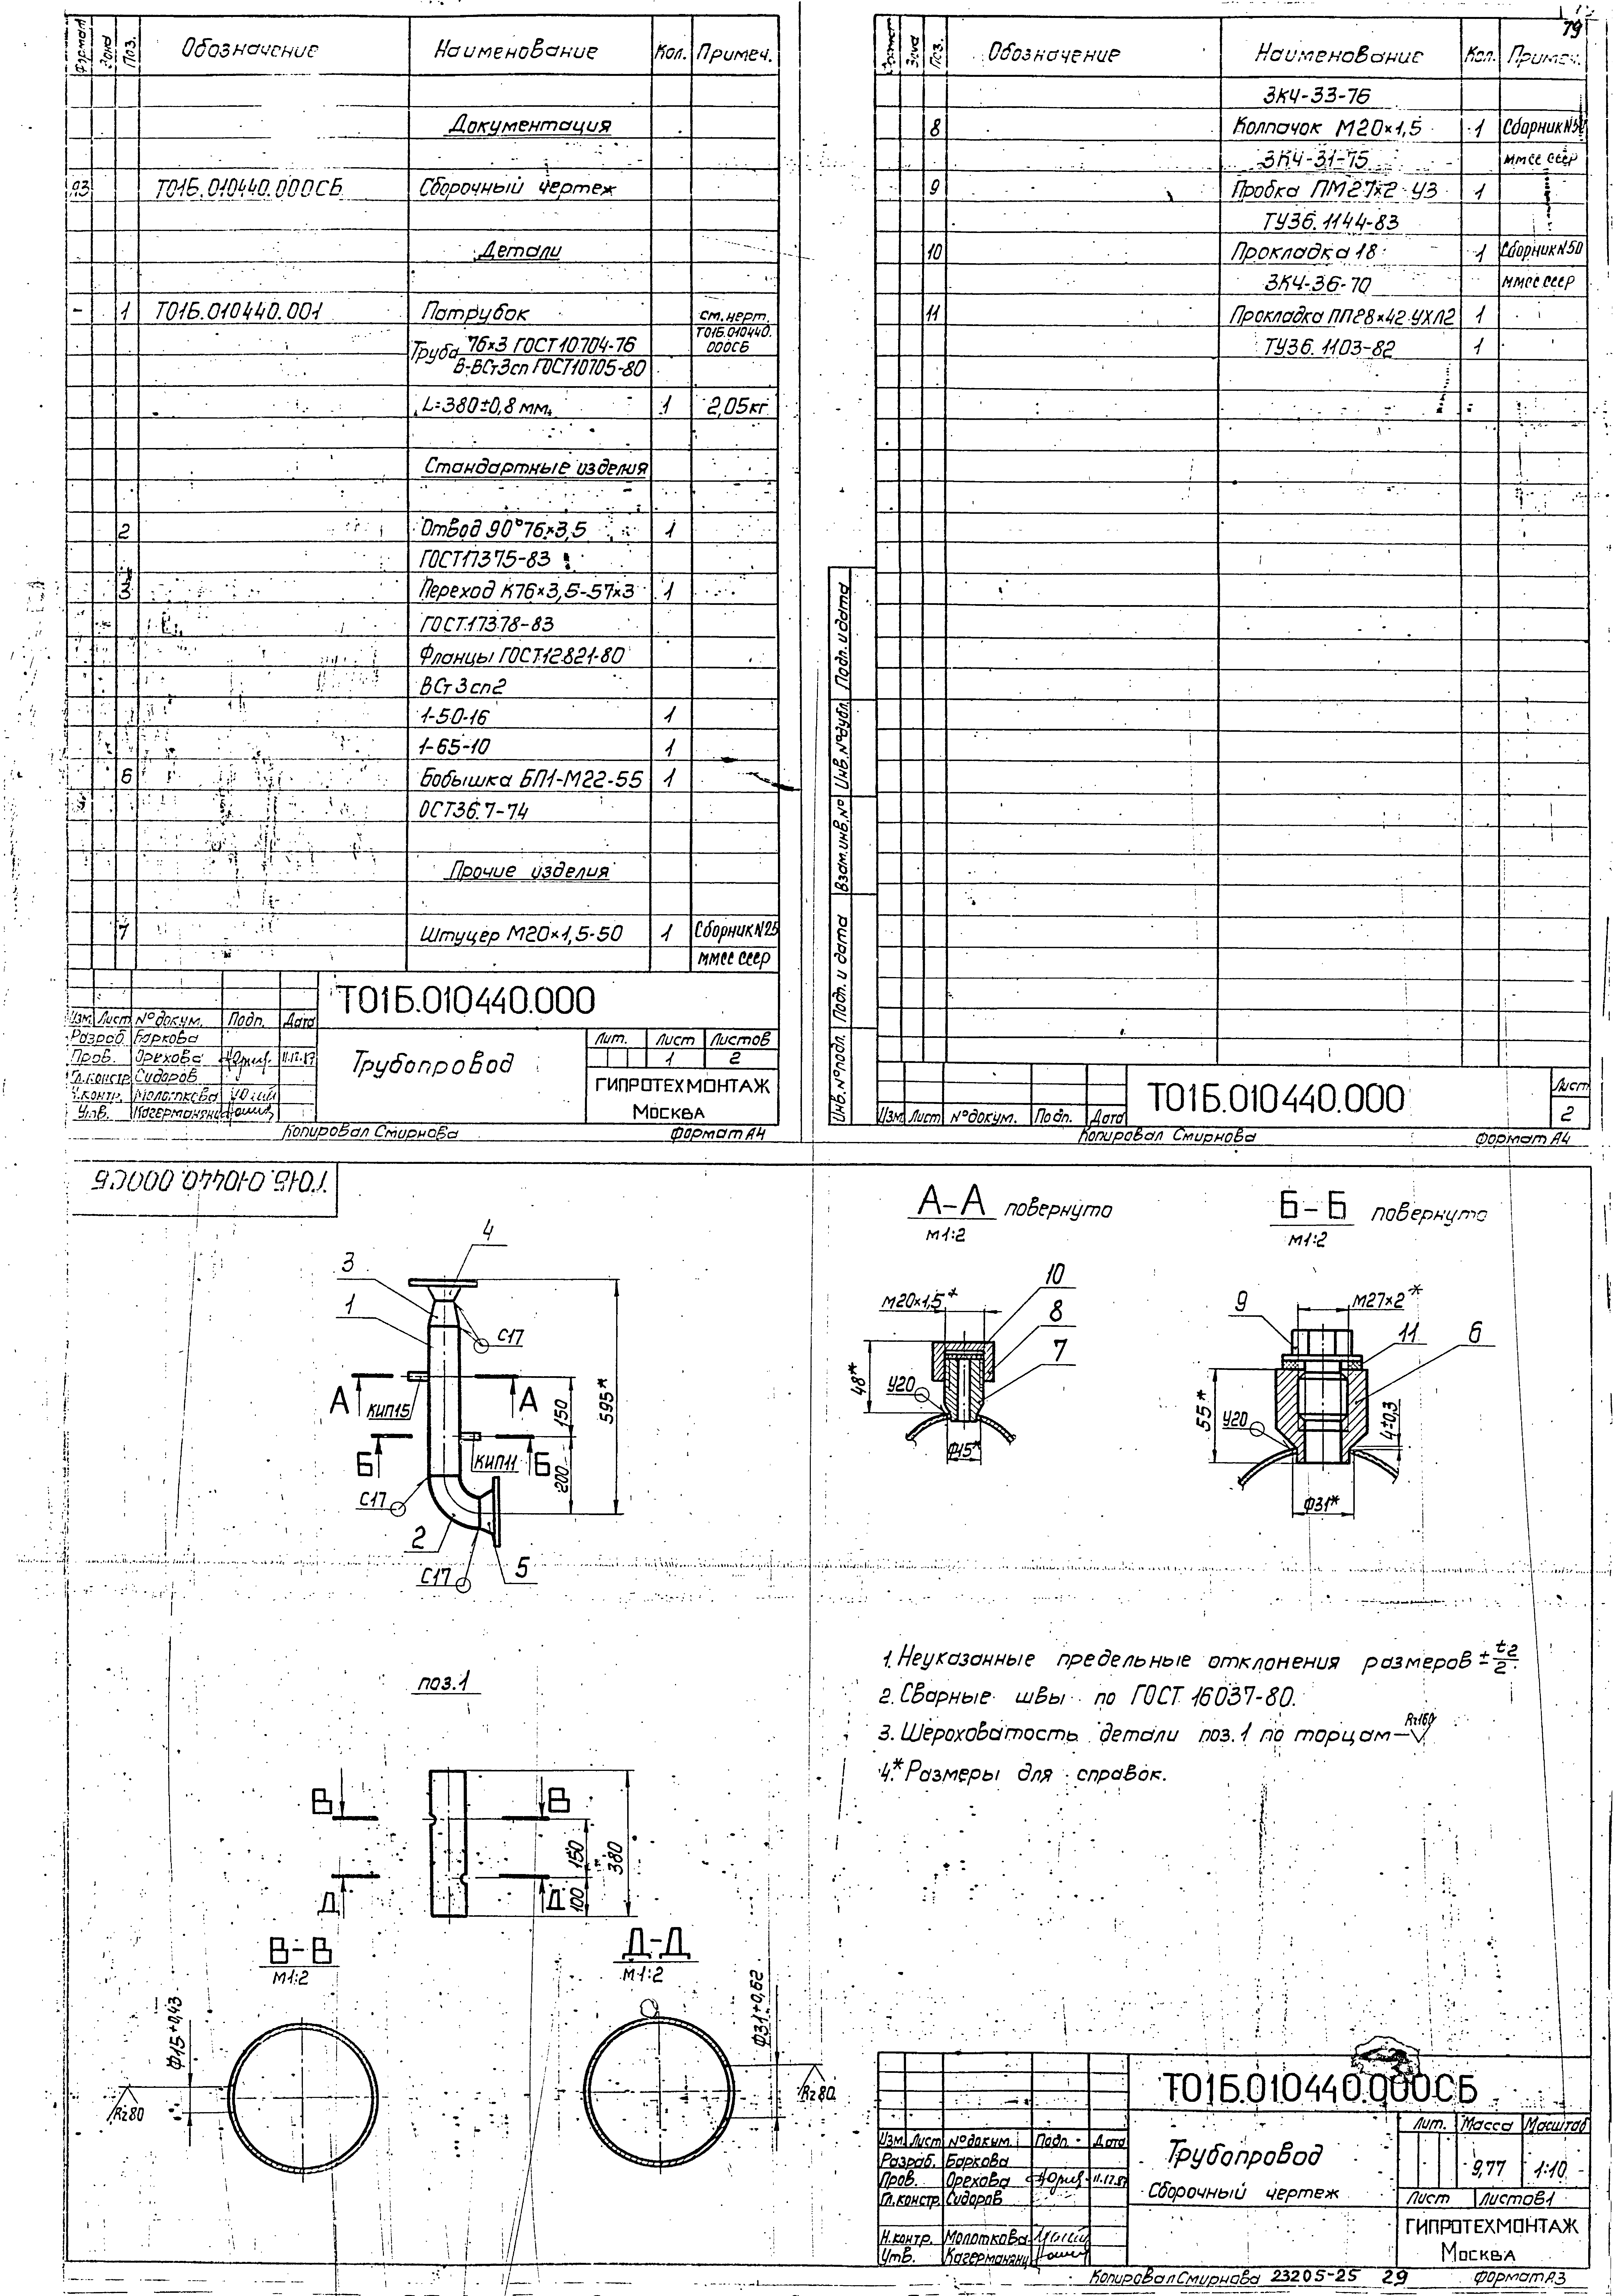 Формат Зона Поз. Обозначение Наименование Кол. Примеч.
Документация
А3 Т01Б.010440.000СБ Сборочный чертеж
Детали
- 1 Т01Б.010440.001 Патрубок см. черт.
Т01Б.010440.
000СБ
Труба 76×3 ГОСТ 10704-76
В-ВСт3сп ГОСТ10705-80
L=380±0,8 мм. 1 2,05кг
Стандартные изделия
2 Отвод 90°76×3,5 1
ГОСТ17375-83
3 Переход К76×3,5-57×3 1
ГОСТ17378-83
Фланцы ГОСТ12821-80
ВСт3сп2
1-50-16 1
1-65-10 1
6 Бобышка БП1-М22-55 1
ОСТ36.7-74
Прочие изделия
7 Штуцер М20×1,5-50 1 Сборник N25
ММСС СССР
Т01Б.010440.000
Изм. Лист № докум. Подп. Дата
Разраб. Баркова
Пров. Орехова 11.12.87
Гл.констр. Сидоров
Н.контр. Молоткова
Утв. Кагерманянц
Трубопровод
Лит. Лист Листов
1 2
ГИПРОТЕХМОНТАЖ
Москва
Копировал Смирнова Формат А4
79
Формат Зона Поз. Обозначение Наименование Кол. Примеч.
ЗК4-33-76
8 Колпачок М20×1,5 1 Сборник N50
ЗК4-31-75 ММСС СССР
9 Пробка ПМ27×2 У3 1
ТУ36.1144-83
10 Прокладка 18 1 Сборник N50
ЗК4-36-70 ММСС СССР
11 Прокладка ПП28×42 УХЛ2 1
ТУ36.1103-82 1
Инв.№ подл. Подп. и дата Взам.инв.№ Инв.№ дубл. Подп. и дата
Изм. Лист № докум. Подп. Дата
Т01Б.010440.000
Лист
2
Копировал Смирнова Формат А4
Т01Б.010440.000СБ
4
3
1
С17
А А
КИП15
Б Б
КИП11
150
200
595*
С17
2
С17
5
А-А повернуто
М1:2
М20×1,5*
10
8
7
48*
У20
Ф15*
Б-Б повернуто
М1:2
9
М27×2*
11
6
55*
У20
4±0,3
Ф31*
поз.1
В В
Д Д
150
100
380
В-В
М1:2
Ф15+0,43
Rz80
Д-Д
М1:2
Ф31+0,62
Rz80
1. Неуказанные предельные отклонения размеров ± t2/2.
2. Сварные швы по ГОСТ 16037-80.
3. Шероховатость детали поз.1 по торцам Rz160
4.* Размеры для справок.
Т01Б.010440.000СБ
Изм. Лист № докум. Подп. Дата
Разраб. Баркова
Пров. Орехова 11.12.87
Гл.констр. Сидоров
Н.контр. Молоткова
Утв. Кагерманянц
Трубопровод
Сборочный чертеж
Лит. Масса Масштаб
9,77 1:10
Лист Листов 1
ГИПРОТЕХМОНТАЖ
Москва
Копировал Смирнова 23205-25 29 Формат А3